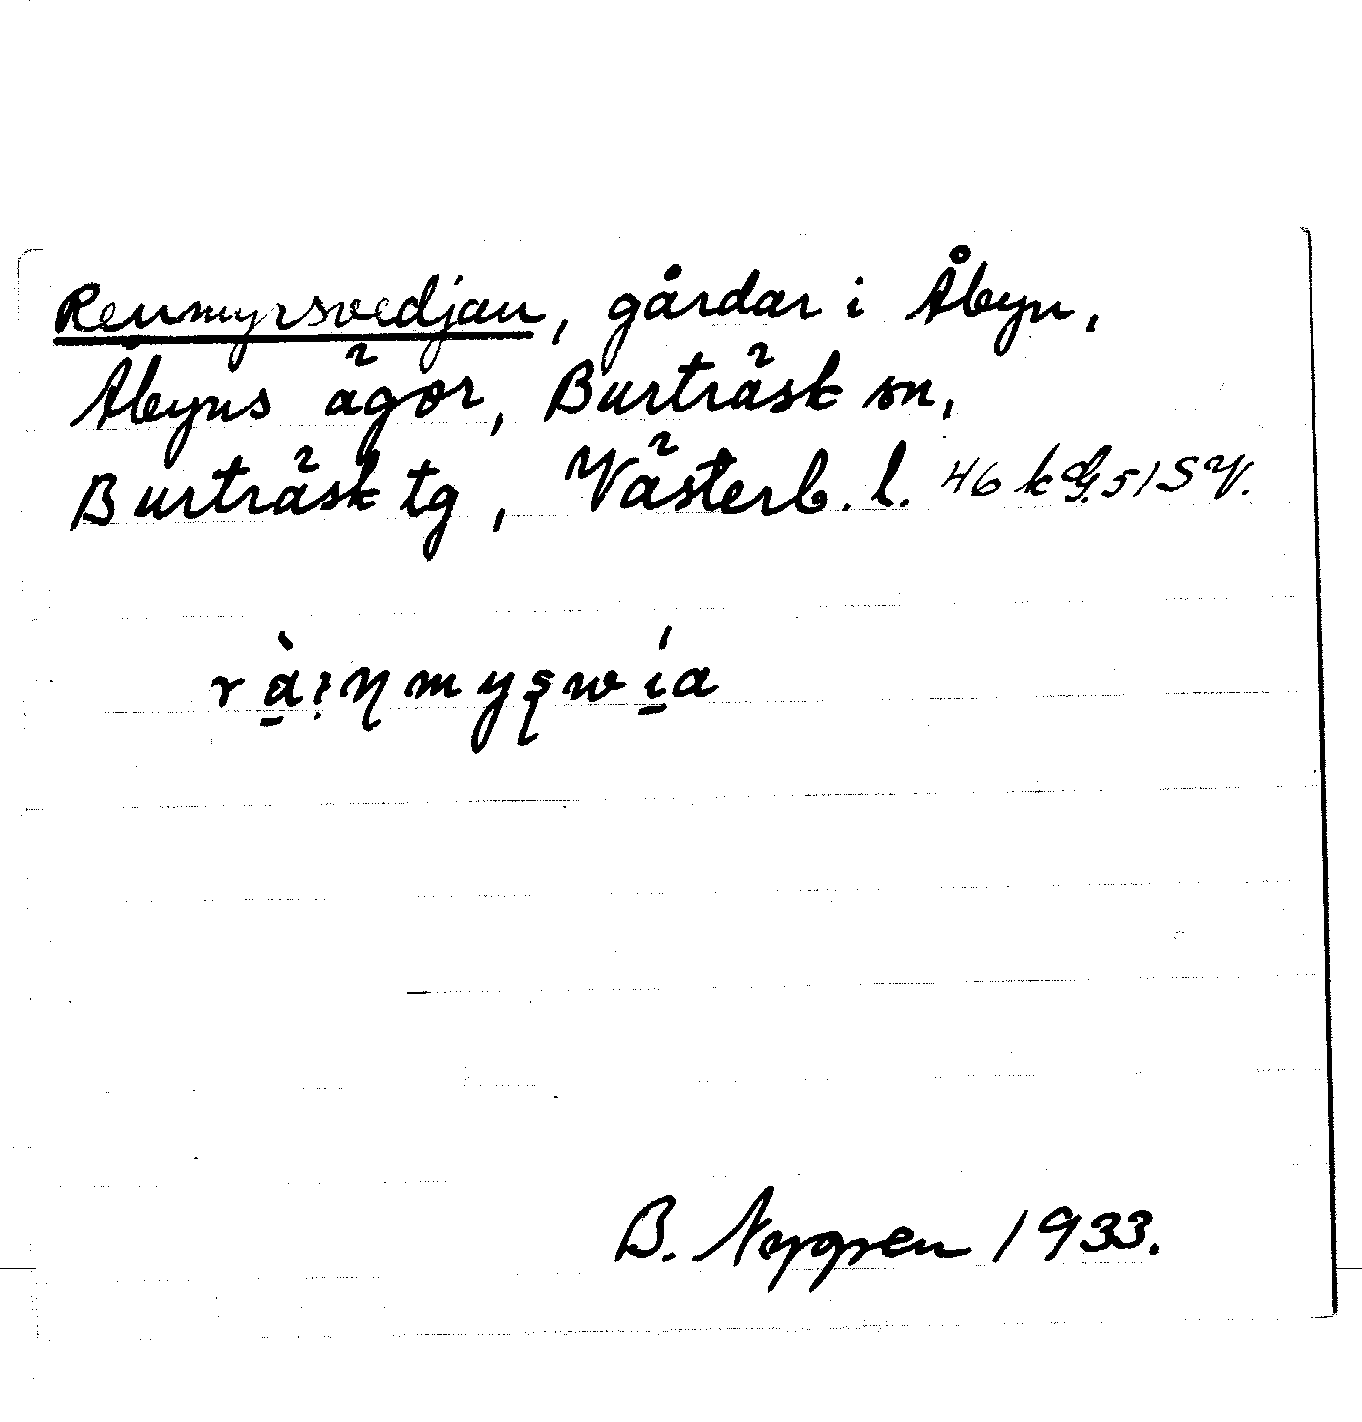 Renmyrsvedjan, gårdar i Åbyn,
Åbyns ägor, Burträsk sn,
Burträsk tg, Västerb. l. 46 k
B. Nygren 1933.